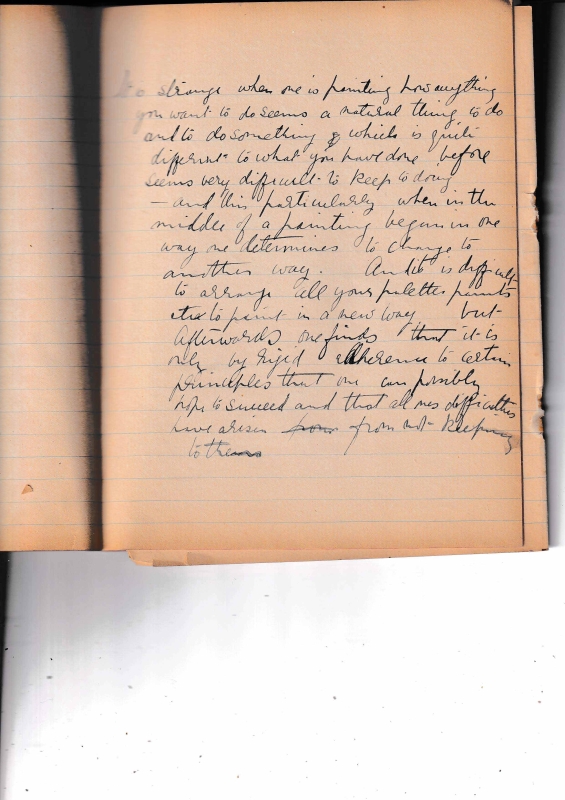 Its strange when one is painting how anything
you want to do seems a natural thing to do
and to do something & which is quite
different to what you have done before
seems very difficult to keep to doing
– and this particularly when in the
middle of a painting begun in one
way one determines to change to
another way. And it is difficult
to arrange all your palettes paints
etc to paint in a new way but
afterwards one finds that it is
only by rigid adherence to certain
principles that one can possibly
hope to succeed and that all ones difficulties
have arisen from not keeping
to them